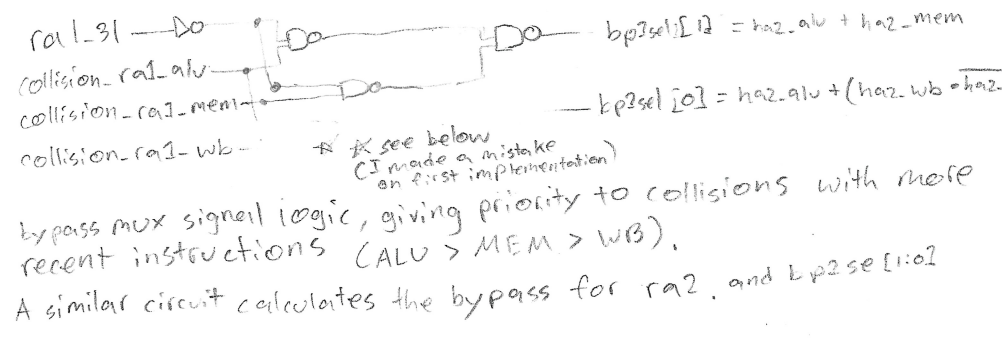 ra1_31
bp1sel[1] = haz_alu + haz_mem
collision_ra1_alu
collision_ra1_mem
bp1sel[0] = haz_alu + (haz_wb • haz_
collision_ra1_wb
* * see below
(I made a mistake
on first implementation)
bypass mux signal logic, giving priority to collisions with more
recent instructions (ALU > MEM > WB).
A similar circuit calculates the bypass for ra2, and bp2se[1:0]